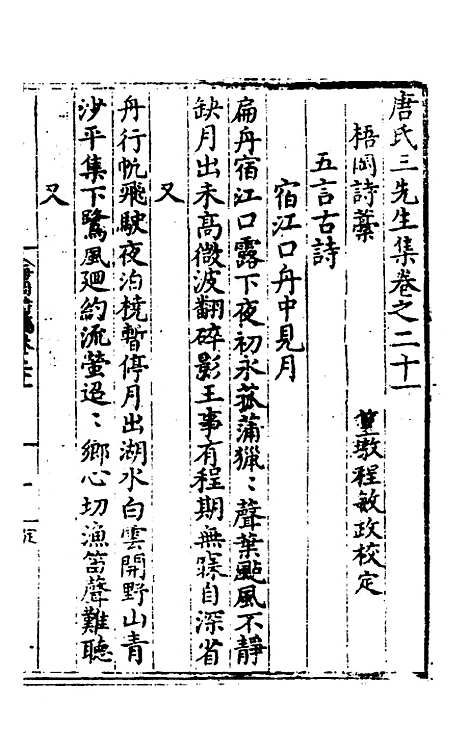 唐氏三先生集卷之二十一
梧岡詩藳 篁墩程敏政校定
五言古詩
宿江口舟中見月
扁舟宿江口露下夜初永菰蒲獵〻聲葉颭風不靜
缺月出未高微波翻碎影王事有程期無寐自深省
又
丹行帆飛駛夜泊橈暫停月出湖水白雲開野山青
沙平集下鷺風廻約流螢迢〻鄉心切漁笛聲難聽
又